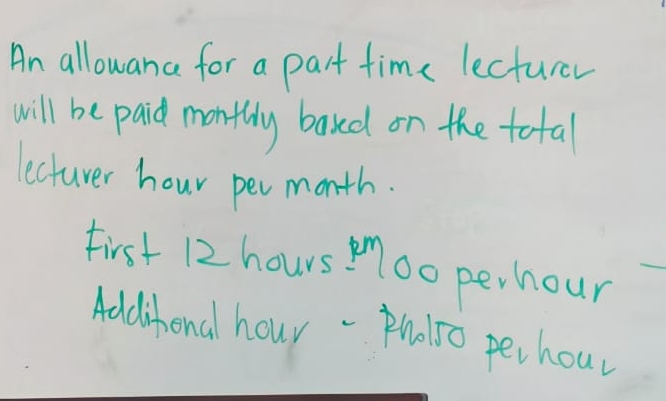 An allowance for a part time lecturer
will be paid monthly based on the total
lecturer hour per month.
First 12 hours - RM100 per hour
Additional hour - RM150 per hour